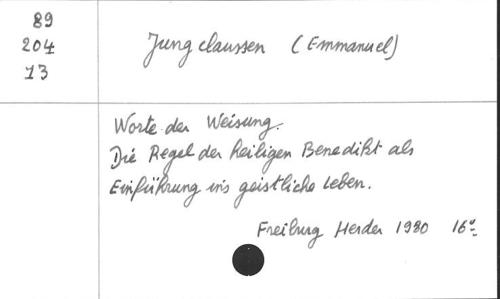 89
204
13
Jungclaussen (Emmanuel)
Worte der Weisung.
Die Regel der heiligen Benedikt als
Einführung ins geistliche Leben.
Freiburg Herder 1980 16°